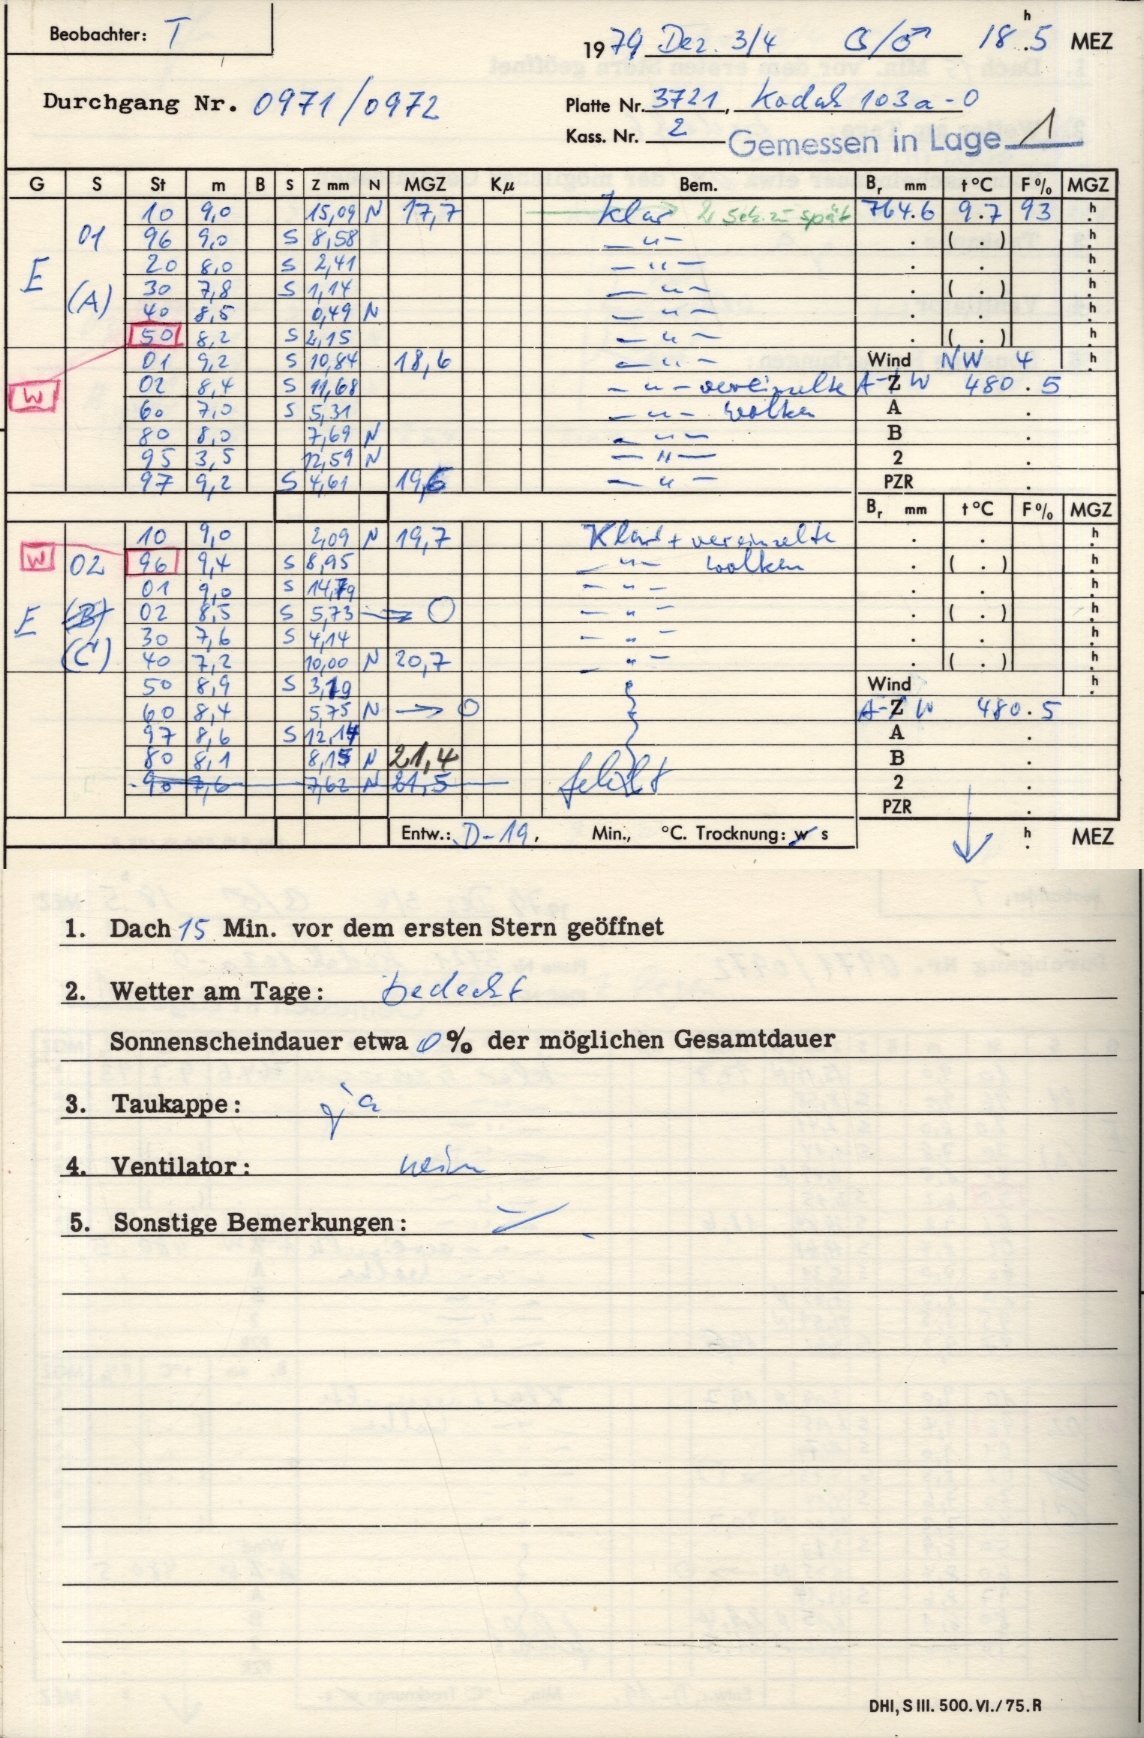 Beobachter: T
1979 Dez. 3/4 B/♂ 18 h .5 MEZ
Durchgang Nr. 0971/0972
Platte Nr. 3721, Kodak 103a-O
Kass. Nr. 2 Gemessen in Lage 1
G S St m B S Z mm N MGZ Kμ Bem. Br mm t°C F% MGZ
10 9,0 15,09 N 17,7 Klar 2 sek. zu spät 764.6 9.7 93 h
01 96 9,0 S 8,58 — " — . ( . ) h
E 20 8,0 S 2,41 — " — . . h
(A) 30 7,8 S 1,14 — " — . ( . ) h
40 8,5 0,49 N — " — . . h
50 8,2 S 2,15 — " — . ( . ) h
01 9,2 S 10,84 18,6 — " — Wind NW 4 h
W 02 8,4 S 11,68 — " — vereinzelte A-Z W 480.5
60 7,0 S 5,31 — " — Wolken A .
80 8,0 7,69 N — " — B .
95 3,5 12,59 N — " — 2 .
97 9,2 S 4,61 19,6 — " — PZR .
Br mm t°C F% MGZ
10 9,0 2,09 N 19,7 Klar + vereinzelte . . h
W 02 96 9,4 S 8,95 — " — Wolken . ( . ) h
01 9,0 S 14,79 — " — . . h
E (B) 02 8,5 S 5,73 → O — " — . ( . ) h
(C) 30 7,6 S 4,14 — " — . . h
40 7,2 10,00 N 20,7 — " — . ( . ) h
50 8,9 S 3,19 Wind h
60 8,4 5,75 N → O A-Z W 480.5
97 8,6 S 12,14 A .
80 8,1 8,15 N 21,4 B .
90 7,6 7,62 N 21,5 fehlt 2 .
PZR .
Entw.: D-19, Min., °C. Trocknung: w s h . MEZ
1. Dach 15 Min. vor dem ersten Stern geöffnet
2. Wetter am Tage: bedeckt
Sonnenscheindauer etwa 0% der möglichen Gesamtdauer
3. Taukappe: ja
4. Ventilator: nein
5. Sonstige Bemerkungen: —
DHI, S III. 500. VI./75. R